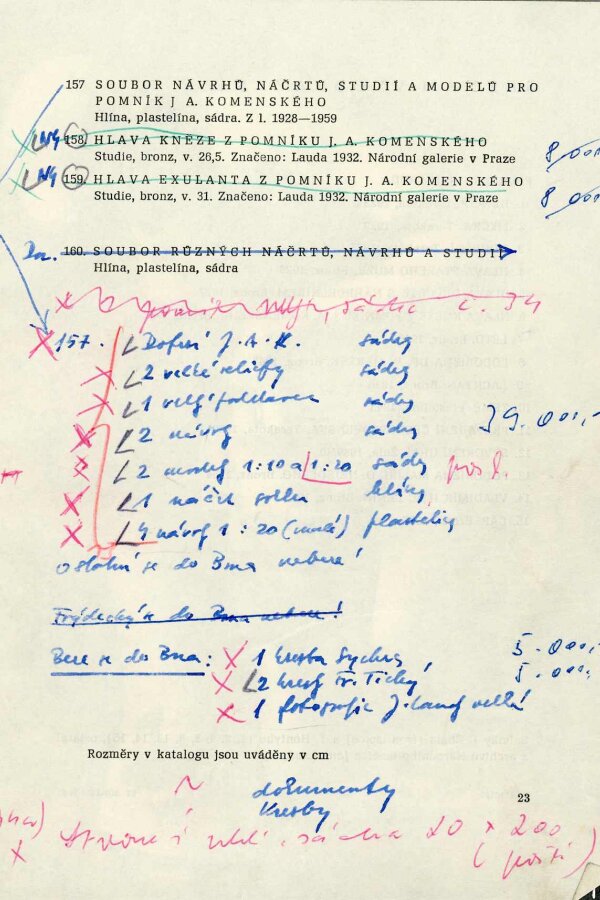 157 SOUBOR NÁVRHŮ, NÁČRTŮ, STUDIÍ A MODELŮ PRO
POMNÍK J A. KOMENSKÉHO
Hlína, plastelína, sádra. Z l. 1928—1959
NG 158. HLAVA KNĚZE Z POMNÍKU J. A. KOMENSKÉHO
Studie, bronz, v. 26,5. Značeno: Lauda 1932. Národní galerie v Praze
NG 159. HLAVA EXULANTA Z POMNÍKU J. A. KOMENSKÉHO
Studie, bronz, v. 31. Značeno: Lauda 1932. Národní galerie v Praze
160. SOUBOR RŮZNÝCH NÁČRTŮ, NÁVRHŮ A STUDIÍ
Hlína, plastelína, sádra
č. 34
157. J. A. K. sádry
2 velké reliéfy sádry
1 sádry
2 návrhy sádry
2 modely 1:10 a 1:20 sádry
1 náčrt hlíny
4 návrhy 1:20 (malé) plastelíny
Ostatní se do Brna nebere!
se do Brna nebere!
Bere se do Brna: 1 kresba Sychra 5.000,-
2 kresby Fr. Tichý 5.000,-
1 fotografie J. Laudy velká
Rozměry v katalogu jsou uváděny v cm
dokumenty
23
kresby
sádra 20 × 200